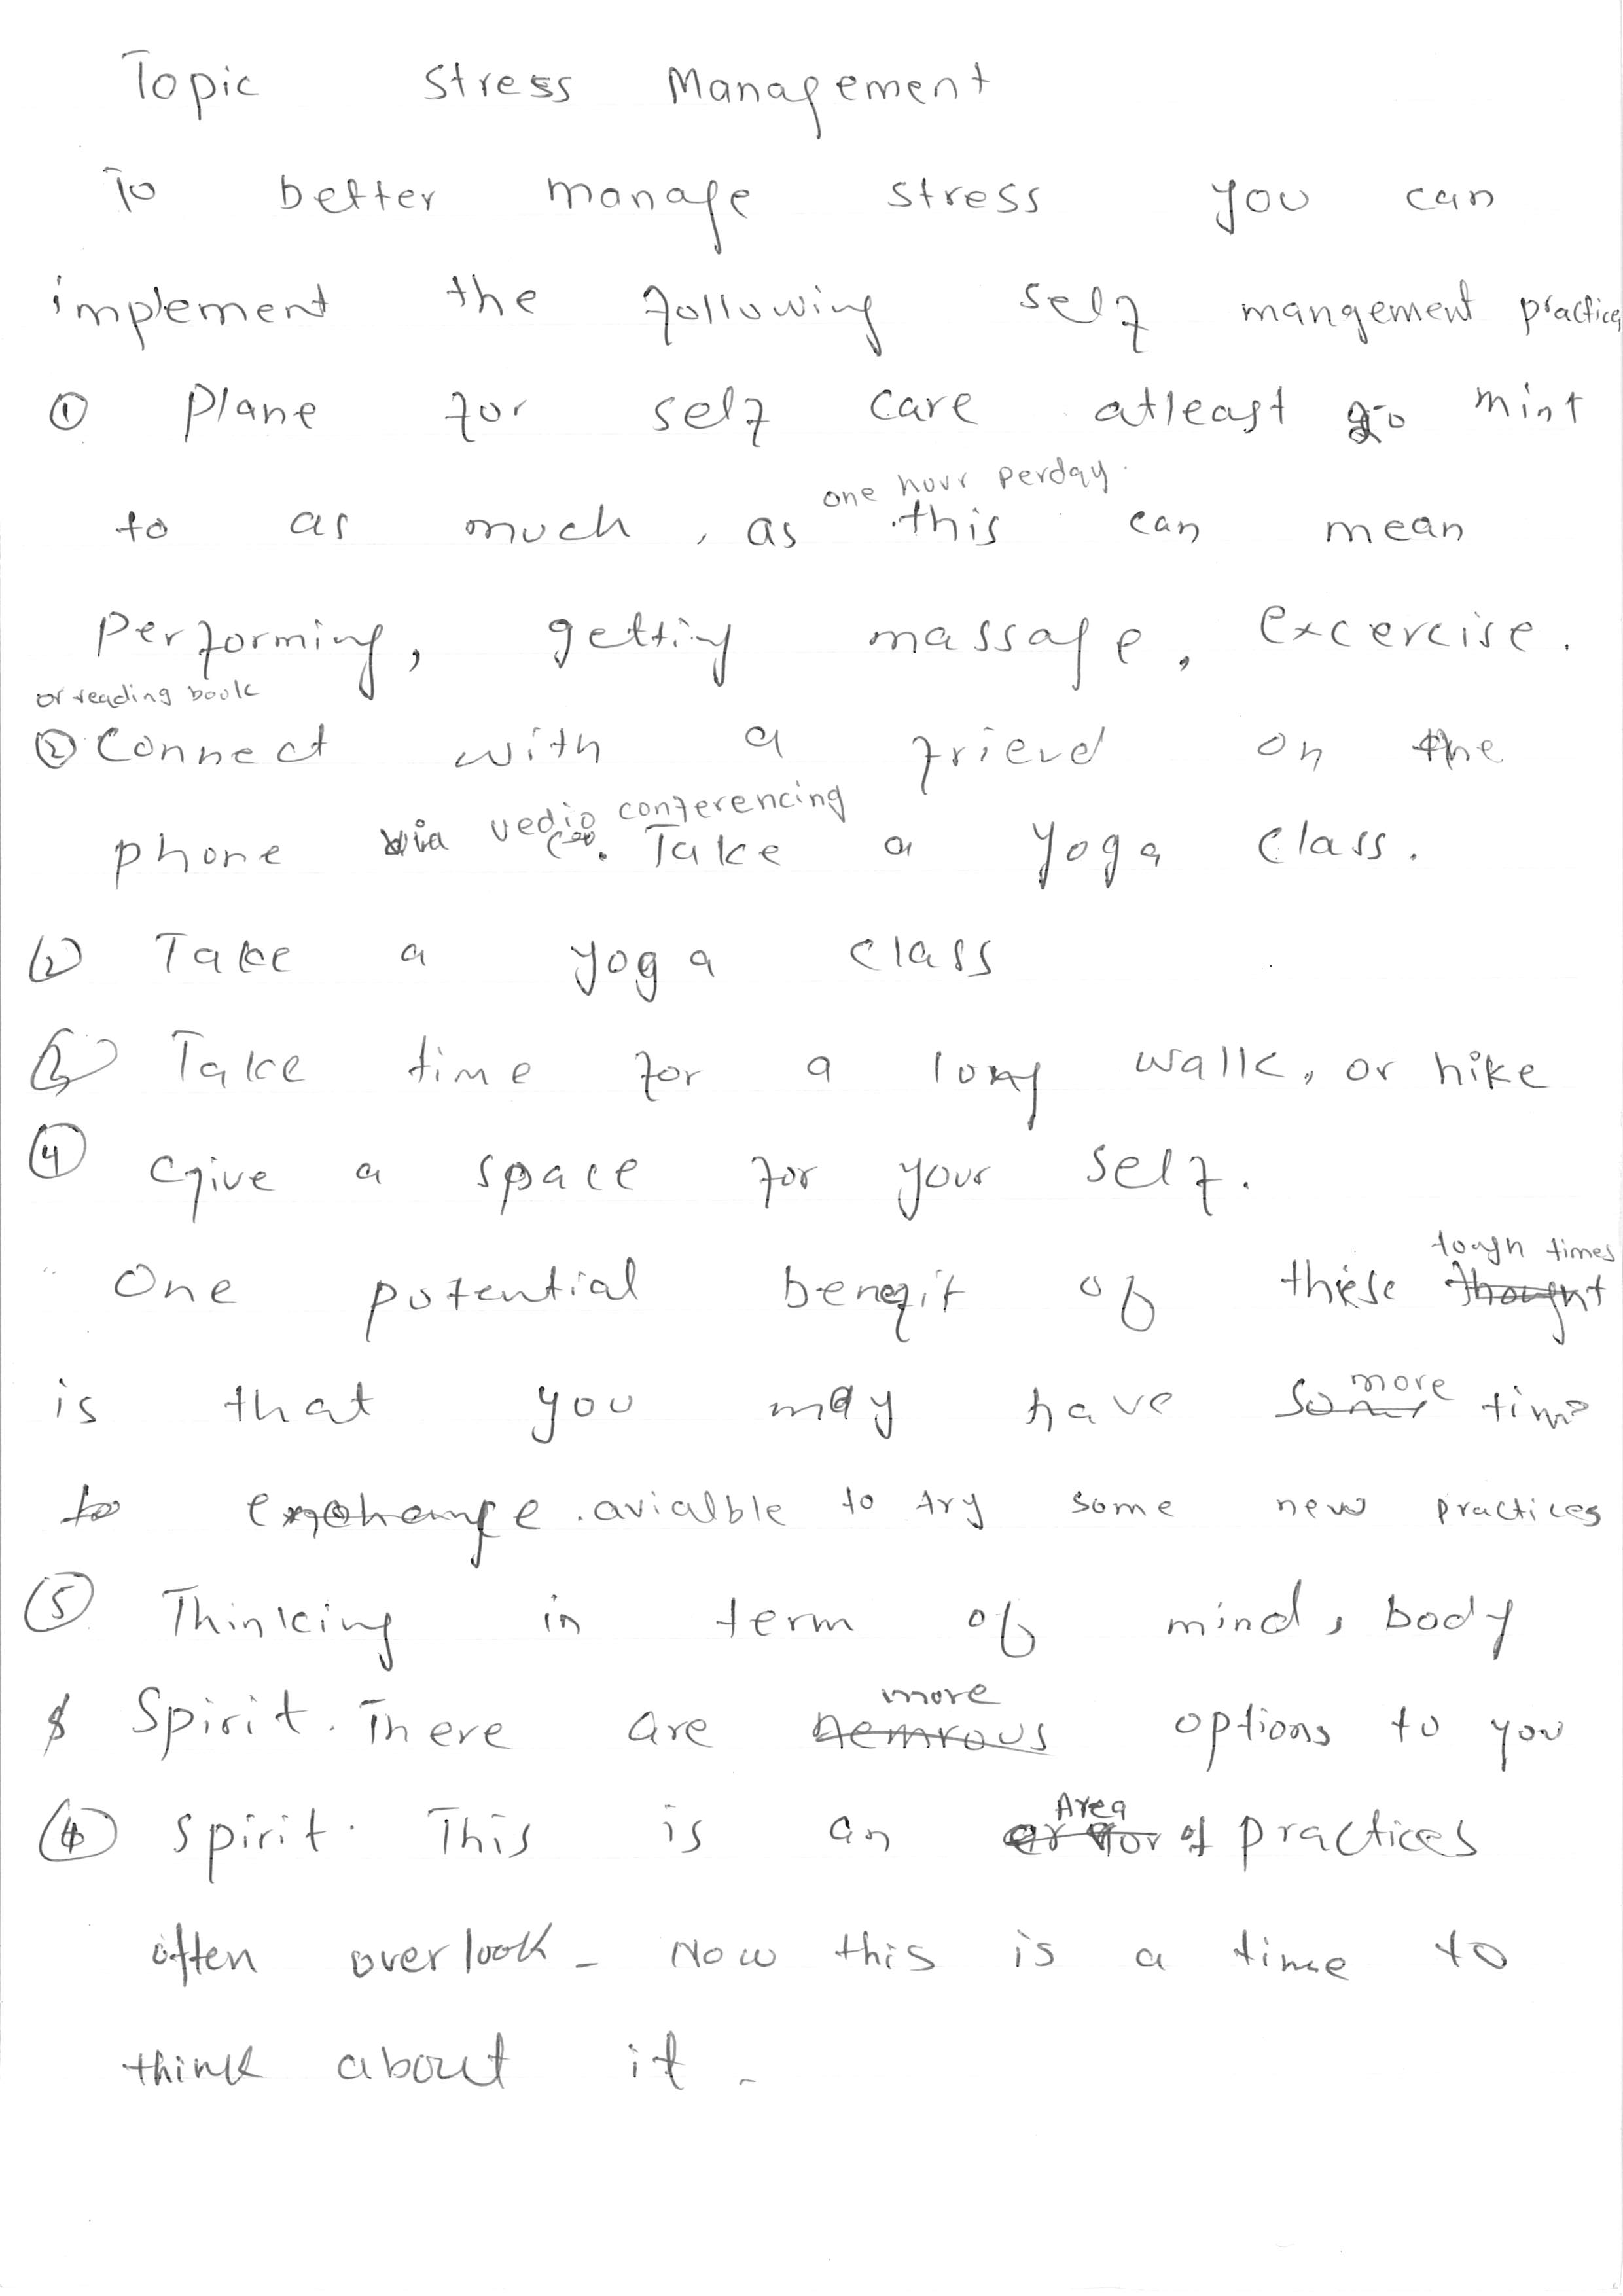 Topic Stress Management
To better manage stress you can
implement the following self mangement practices
① Plane for self care atleast mint
one hour perday.
to as much, as this can mean
Performing, getting massage, excercise.
or reading book
② Connect with a friend on the
vedio conferencing
phone via Take a yoga class.
Take a yoga class
Take time for a long walk, or hike
④ Give a space for your self.
tough times
One potential benefit of these thought
more
is that you may have some time
to exchange. avialble to try some new practices
⑤ Thinking in term of mind, body
more
& Spirit. There are nemrous options to you
Area
⑥ Spirit. This is an of practices
often overlook - Now this is a time to
think about it -